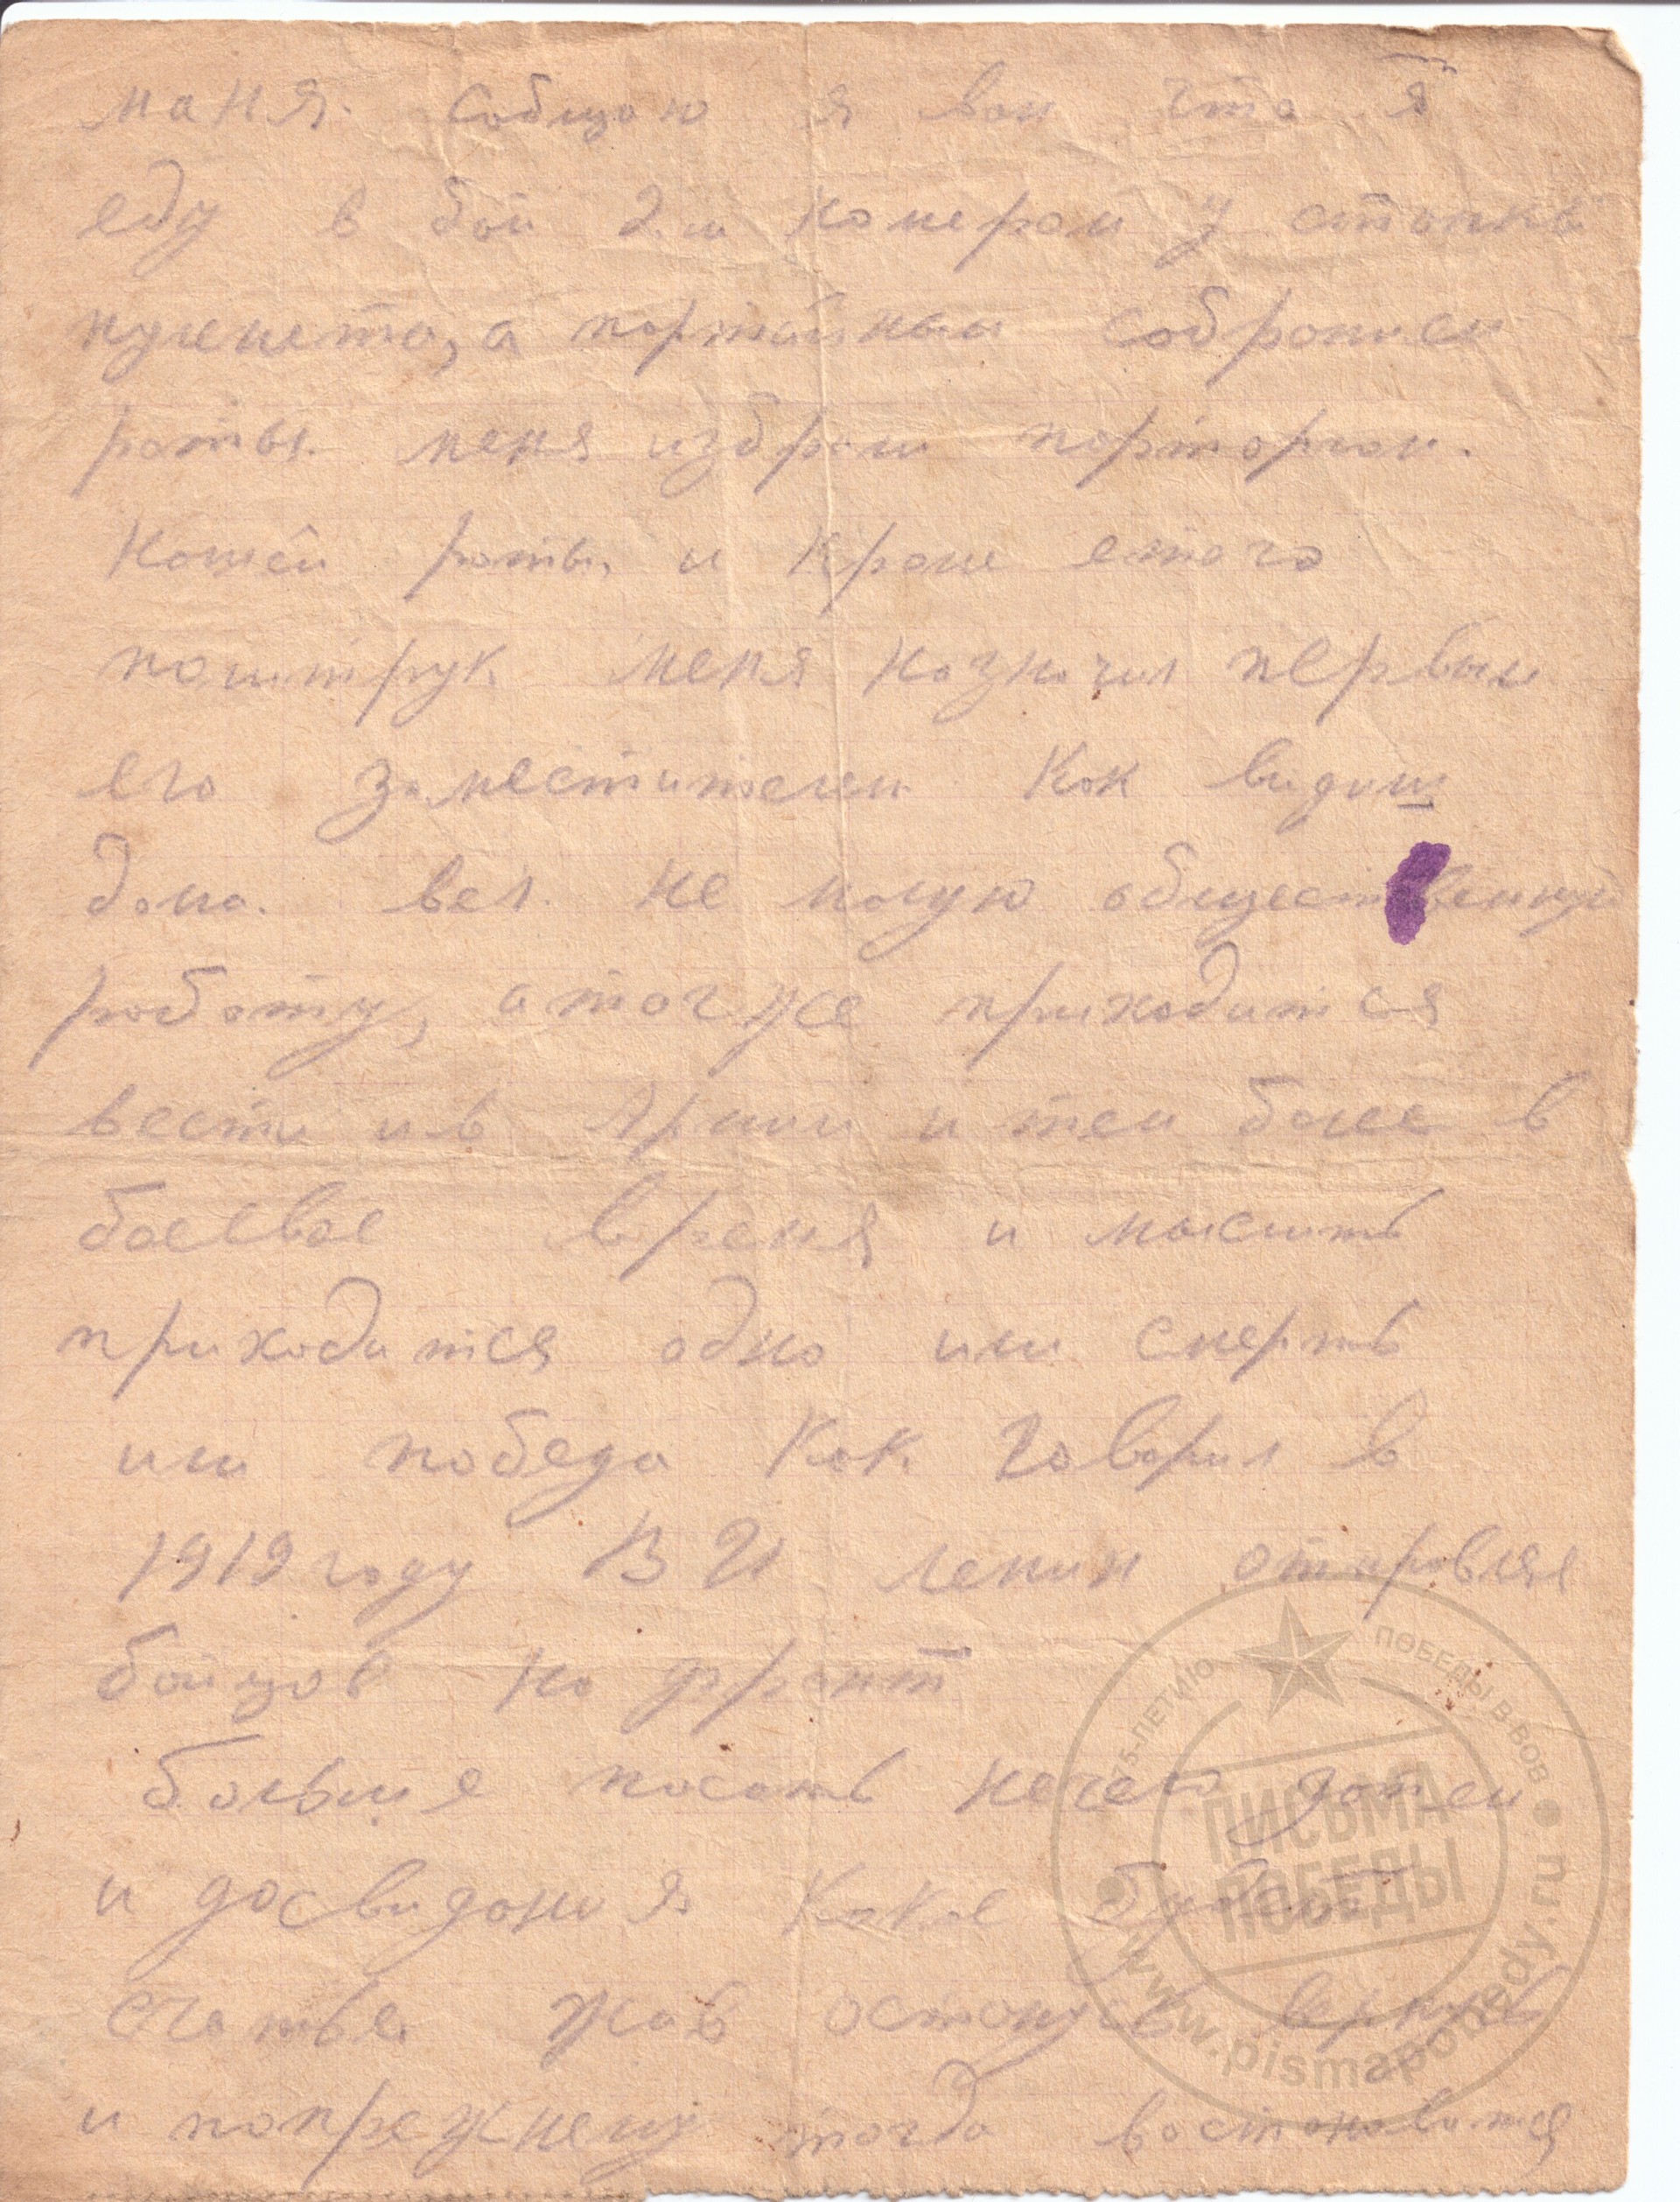 маня. Собщаю я вам что я
еду в бой 2м номером у станква
пулемета, а партайным собранием
роты. меня избрали парторгом.
Нашей роты и Кроме етого
политрук меня назначил первым
его заместителем Как видиш
дома. вел. не малую общественную
работу, а тагже приходится
вести и в Армии и тем более в
боевое время и мыслить
приходится одно или смерть
или победа Как говорил в
1919 году В И Ленин отправляя
бойцов на фронт
больше писать нечего затем
и досвидания Какое будет
счатье. жив останусь вернусь
и попрежнему тогда востановится
75-ЛЕТИЮ ПОБЕДЫ В ВОВ
ПИСЬМА
ПОБЕДЫ
www.pismapobedy.ru